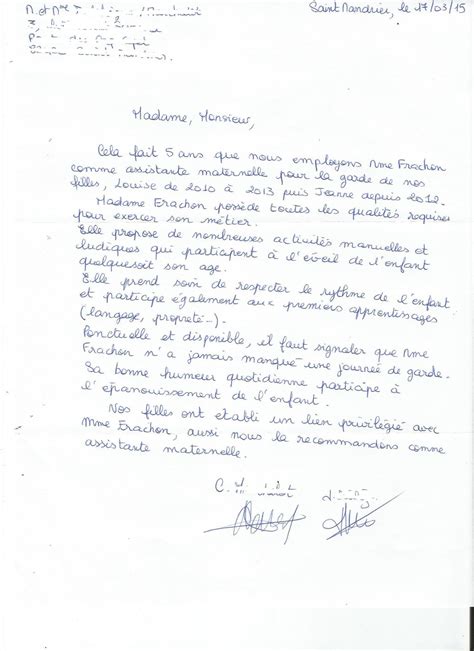 M. et Mme
Saint Mandrier, le 17/03/15
Madame, Monsieur,
Cela fait 5 ans que nous employons Mme Frachon
comme assistante maternelle pour la garde de nos
filles, Louise de 2010 à 2013 puis Jeanne depuis 2012.
Madame Frachon possède toutes les qualités requises
pour exercer son métier.
Elle propose de nombreuses activités manuelles et
ludiques qui participent à l'éveil de l'enfant
quelquesoit son age.
Elle prend soin de respecter le rythme de l'enfant
et participe également aux premiers apprentissages
(langage, propreté...).
Ponctuelle et disponible, il faut signaler que Mme
Frachon n'a jamais manqué une journée de garde.
Sa bonne humeur quotidienne participe à
l'épanouissement de l'enfant.
Nos filles ont établi un lien privilégié avec
Mme Frachon, aussi nous la recommandons comme
assistante maternelle.